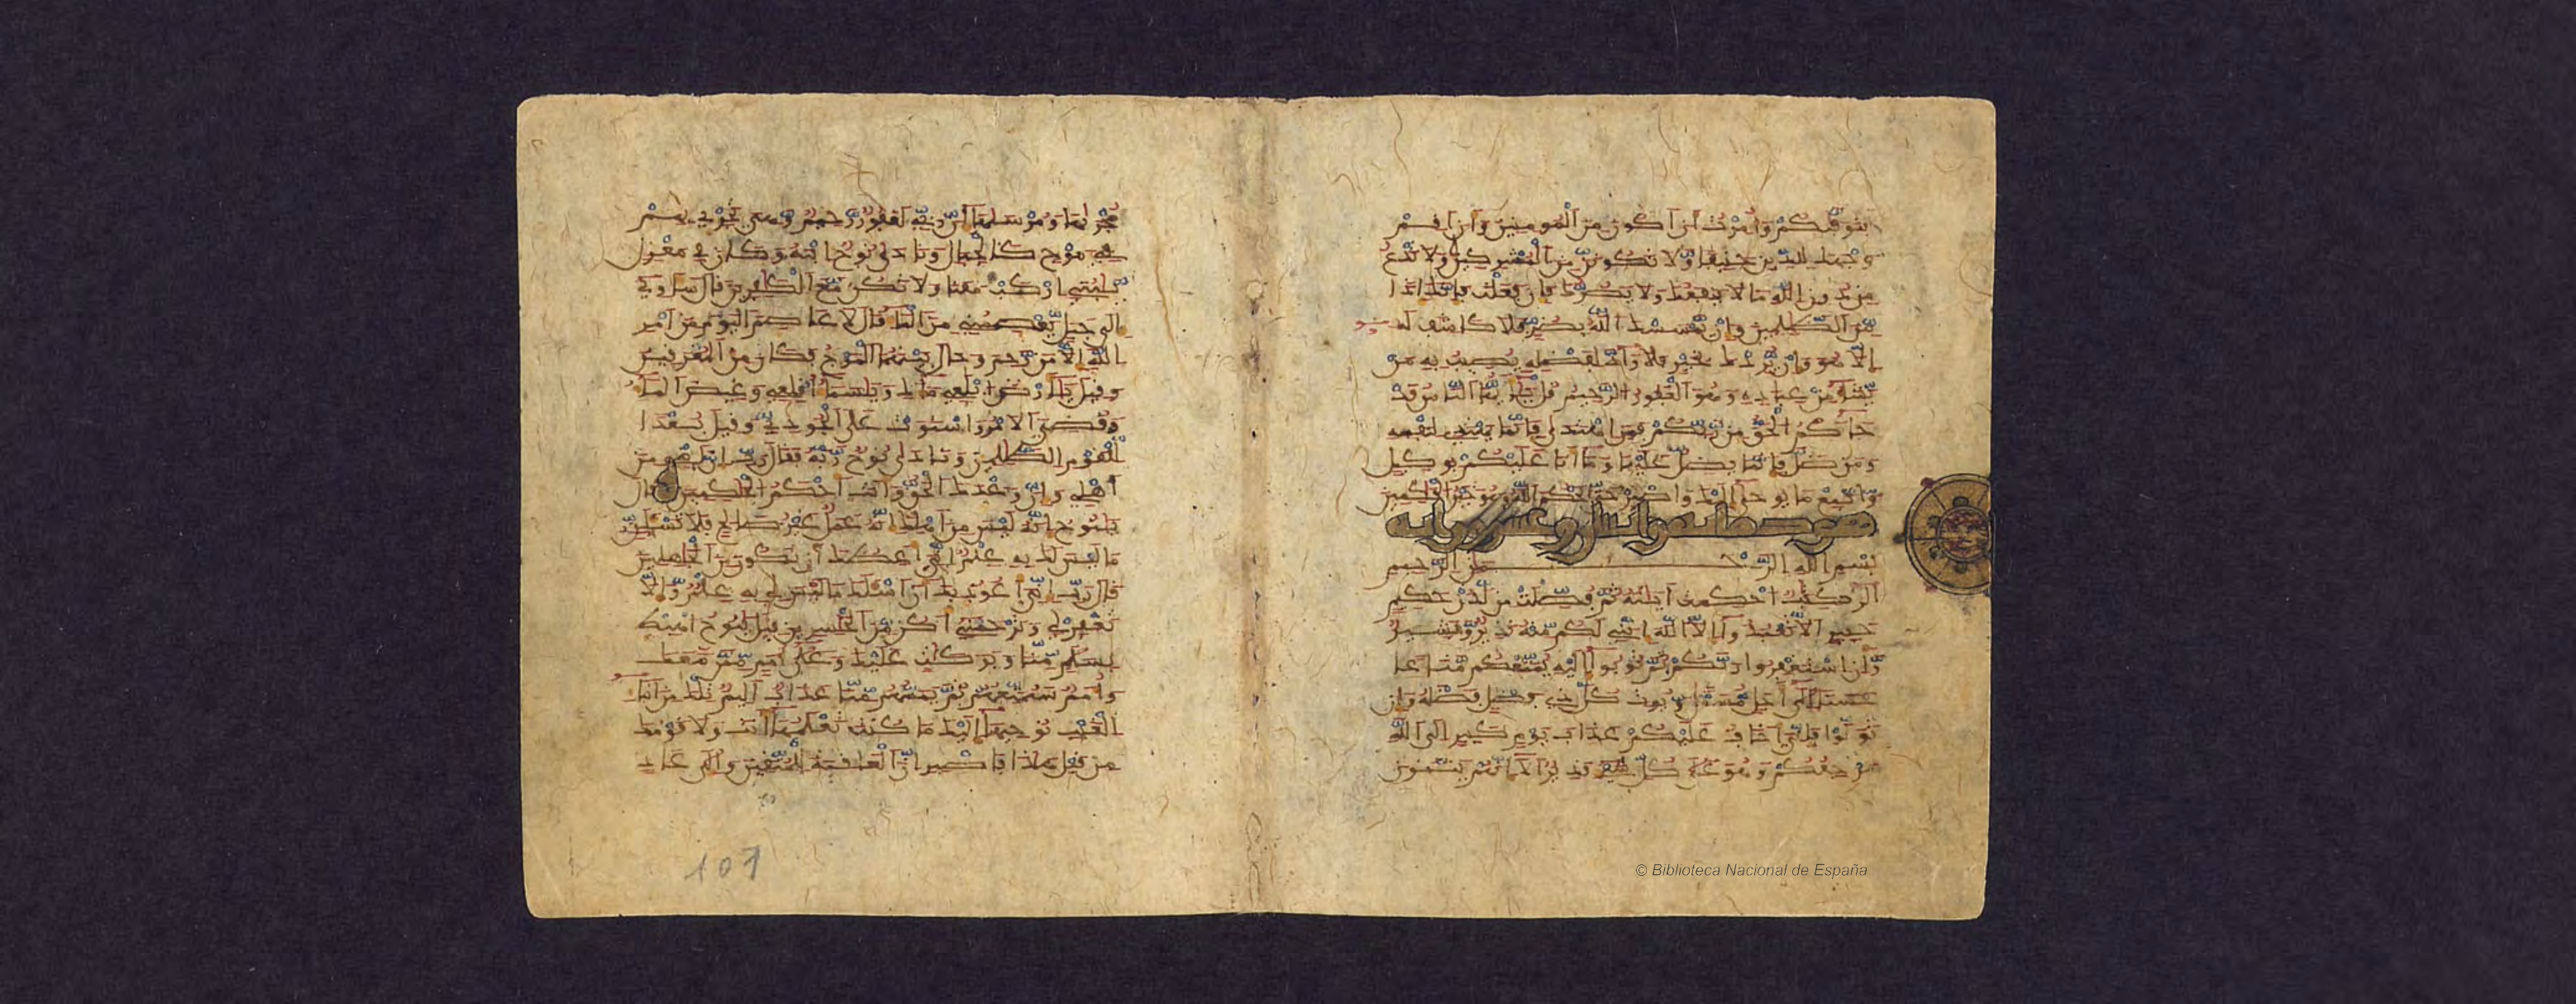 يتوفيكم وامرت ان اكون من المومنين وان اقم
وجهك للدين حنيفا ولا تكونن من المشركين ولا تدع
من دون الله ما لا ينفعك ولا يضرك فان فعلت فانك اذا
من الظلمين وان يمسسك الله بضر فلا كاشف له
الا هو وان يردك بخير فلا راد لفضله يصيب به من
يشاء من عباده وهو الغفور الرحيم قل يايها الناس قد
جاكم الحق من ربكم فمن اهتدى فانما يهتدي لنفسه
ومن ضل فانما يضل عليها وما انا عليكم بوكيل
واتبع ما يوحى اليك واصبر حتى يحكم الله وهو خير الحكمين
هود مايه وعشرون ايه
بسم الله الرحمن الرحيم
الر كتب احكمت ايته ثم فصلت من لدن حكيم
خبير الا تعبدوا الا الله انني لكم منه نذير وبشير
وان استغفروا ربكم ثم توبوا اليه يمتعكم متعا
حسنا الى اجل مسمى ويوت كل ذي فضل فضله وان
تولوا فاني اخاف عليكم عذاب يوم كبير الى الله
مرجعكم وهو على كل شيء قدير الا انهم يثنون
مجريها ومرسيها ان ربي لغفور رحيم وهي تجري بهم
في موج كالجبال ونادى نوح ابنه وكان في معزل
يبني اركب معنا ولا تكن مع الكفرين قال ساوي
الى جبل يعصمني من الما قال لا عاصم اليوم من امر
الله الا من رحم وحال بينهما الموج فكان من المغرقين
وقيل يارض ابلعي ماك ويسما اقلعي وغيض الما
وقضي الامر واستوت على الجودي وقيل بعدا
للقوم الظلمين ونادى نوح ربه فقال رب ان ابني من
اهلي وان وعدك الحق وانت احكم الحكمين قال
ينوح انه ليس من اهلك انه عمل غير صلح فلا تسئلن
ما ليس لك به علم اني اعظك ان تكون من الجهلين
قال رب اني اعوذ بك ان اسئلك ما ليس لي به علم والا
تغفر لي وترحمني اكن من الخسرين قيل ينوح اهبط
بسلم منا وبركت عليك وعلى امم ممن معك
وامم سنمتعهم ثم يمسهم منا عذاب اليم تلك من انبا
الغيب نوحيها اليك ما كنت تعلمها انت ولا قومك
من قبل هذا فاصبر ان العقبة للمتقين والى عاد
107
© Biblioteca Nacional de España